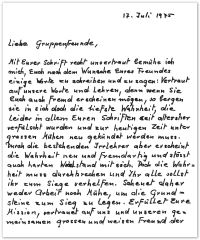 13. Juli 1975
Liebe Gruppenfreunde,
Mit Eurer Schrift recht unvertraut bemühe ich
mich, Euch nach dem Wunsche Eures Freundes
einige Worte zu schreiben und zu sagen: Vertraut
auf unsere Worte und Lehren, denn wenn sie
Euch auch fremd erscheinen mögen, so bergen
sie in sich doch die tiefste Wahrheit, die
leider in allen Euren Schriften seit altersher
verfälscht wurden und zur heutigen Zeit unter
grossen Mühen neu gekündet werden muss.
Durch die bestehenden Irrlehrer aber erscheint
die Wahrheit neu und fremdartig und stösst
auch harten Widerstand mit sich. Doch die Wahr-
heit muss durchbrechen und Ihr alle sollt
ihr zum Siege verhelfen. Scheut daher
weder Arbeit noch Mühe, um die Grund-
steine zum Sieg zu legen. Erfüllet Eure
Mission, vertrauet auf uns und unseren ge-
meinsamen grossen und weisen Freund der